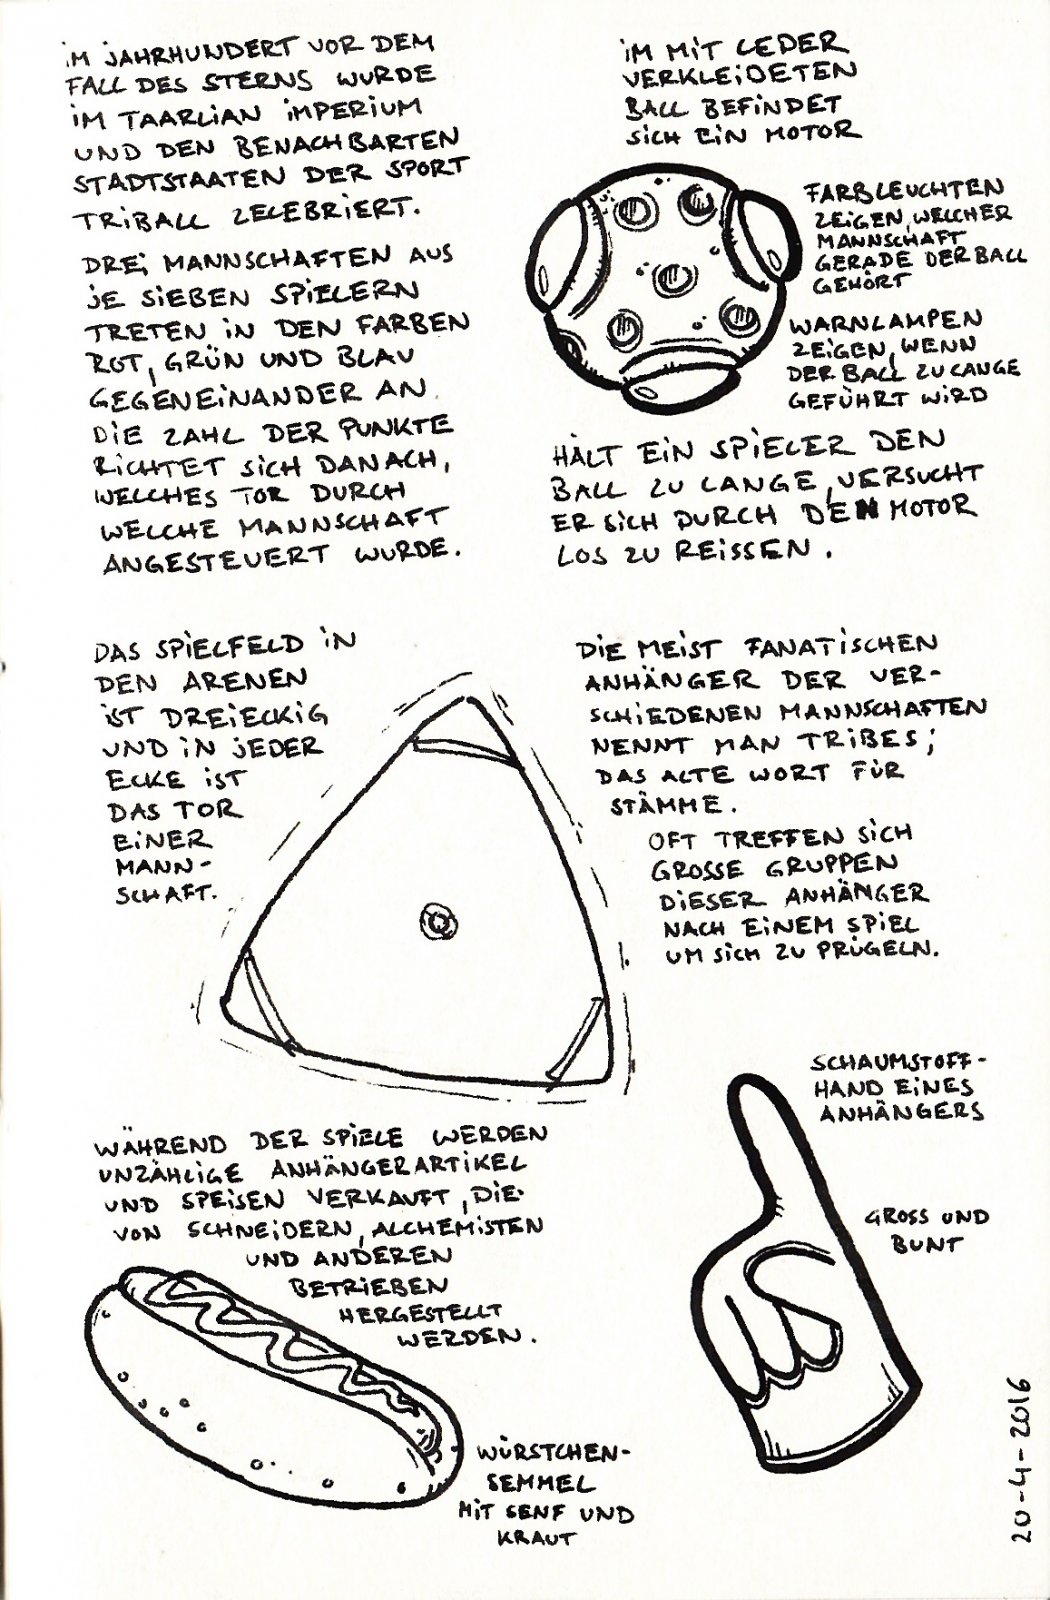 IM JAHRHUNDERT VOR DEM
FALL DES STERNS WURDE
IM TAARLIAN IMPERIUM
UND DEN BENACHBARTEN
STADTSTAATEN DER SPORT
TRIBALL ZELEBRIERT.
DREI MANNSCHAFTEN AUS
JE SIEBEN SPIELERN
TRETEN IN DEN FARBEN
ROT, GRÜN UND BLAU
GEGENEINANDER AN.
DIE ZAHL DER PUNKTE
RICHTET SICH DANACH,
WELCHES TOR DURCH
WELCHE MANNSCHAFT
ANGESTEUERT WURDE.
IM MIT LEDER
VERKLEIDETEN
BALL BEFINDET
SICH EIN MOTOR
FARBLEUCHTEN
ZEIGEN, WELCHER
MANNSCHAFT
GERADE DER BALL
GEHÖRT
WARNLAMPEN
ZEIGEN, WENN
DER BALL ZU LANGE
GEFÜHRT WIRD
HÄLT EIN SPIELER DEN
BALL ZU LANGE, VERSUCHT
ER SICH DURCH DEN MOTOR
LOS ZU REISSEN.
DAS SPIELFELD IN
DEN ARENEN
IST DREIECKIG
UND IN JEDER
ECKE IST
DAS TOR
EINER
MANN-
SCHAFT.
DIE MEIST FANATISCHEN
ANHÄNGER DER VER-
SCHIEDENEN MANNSCHAFTEN
NENNT MAN TRIBES;
DAS ALTE WORT FÜR
STÄMME.
OFT TREFFEN SICH
GROSSE GRUPPEN
DIESER ANHÄNGER
NACH EINEM SPIEL
UM SICH ZU PRÜGELN.
SCHAUMSTOFF-
HAND EINES
ANHÄNGERS
GROSS UND
BUNT
WÄHREND DER SPIELE WERDEN
UNZÄHLIGE ANHÄNGERARTIKEL
UND SPEISEN VERKAUFT, DIE
VON SCHNEIDERN, ALCHEMISTEN
UND ANDEREN
BETRIEBEN
HERGESTELLT
WERDEN.
WÜRSTCHEN-
SEMMEL
MIT SENF UND
KRAUT
20-4-2016